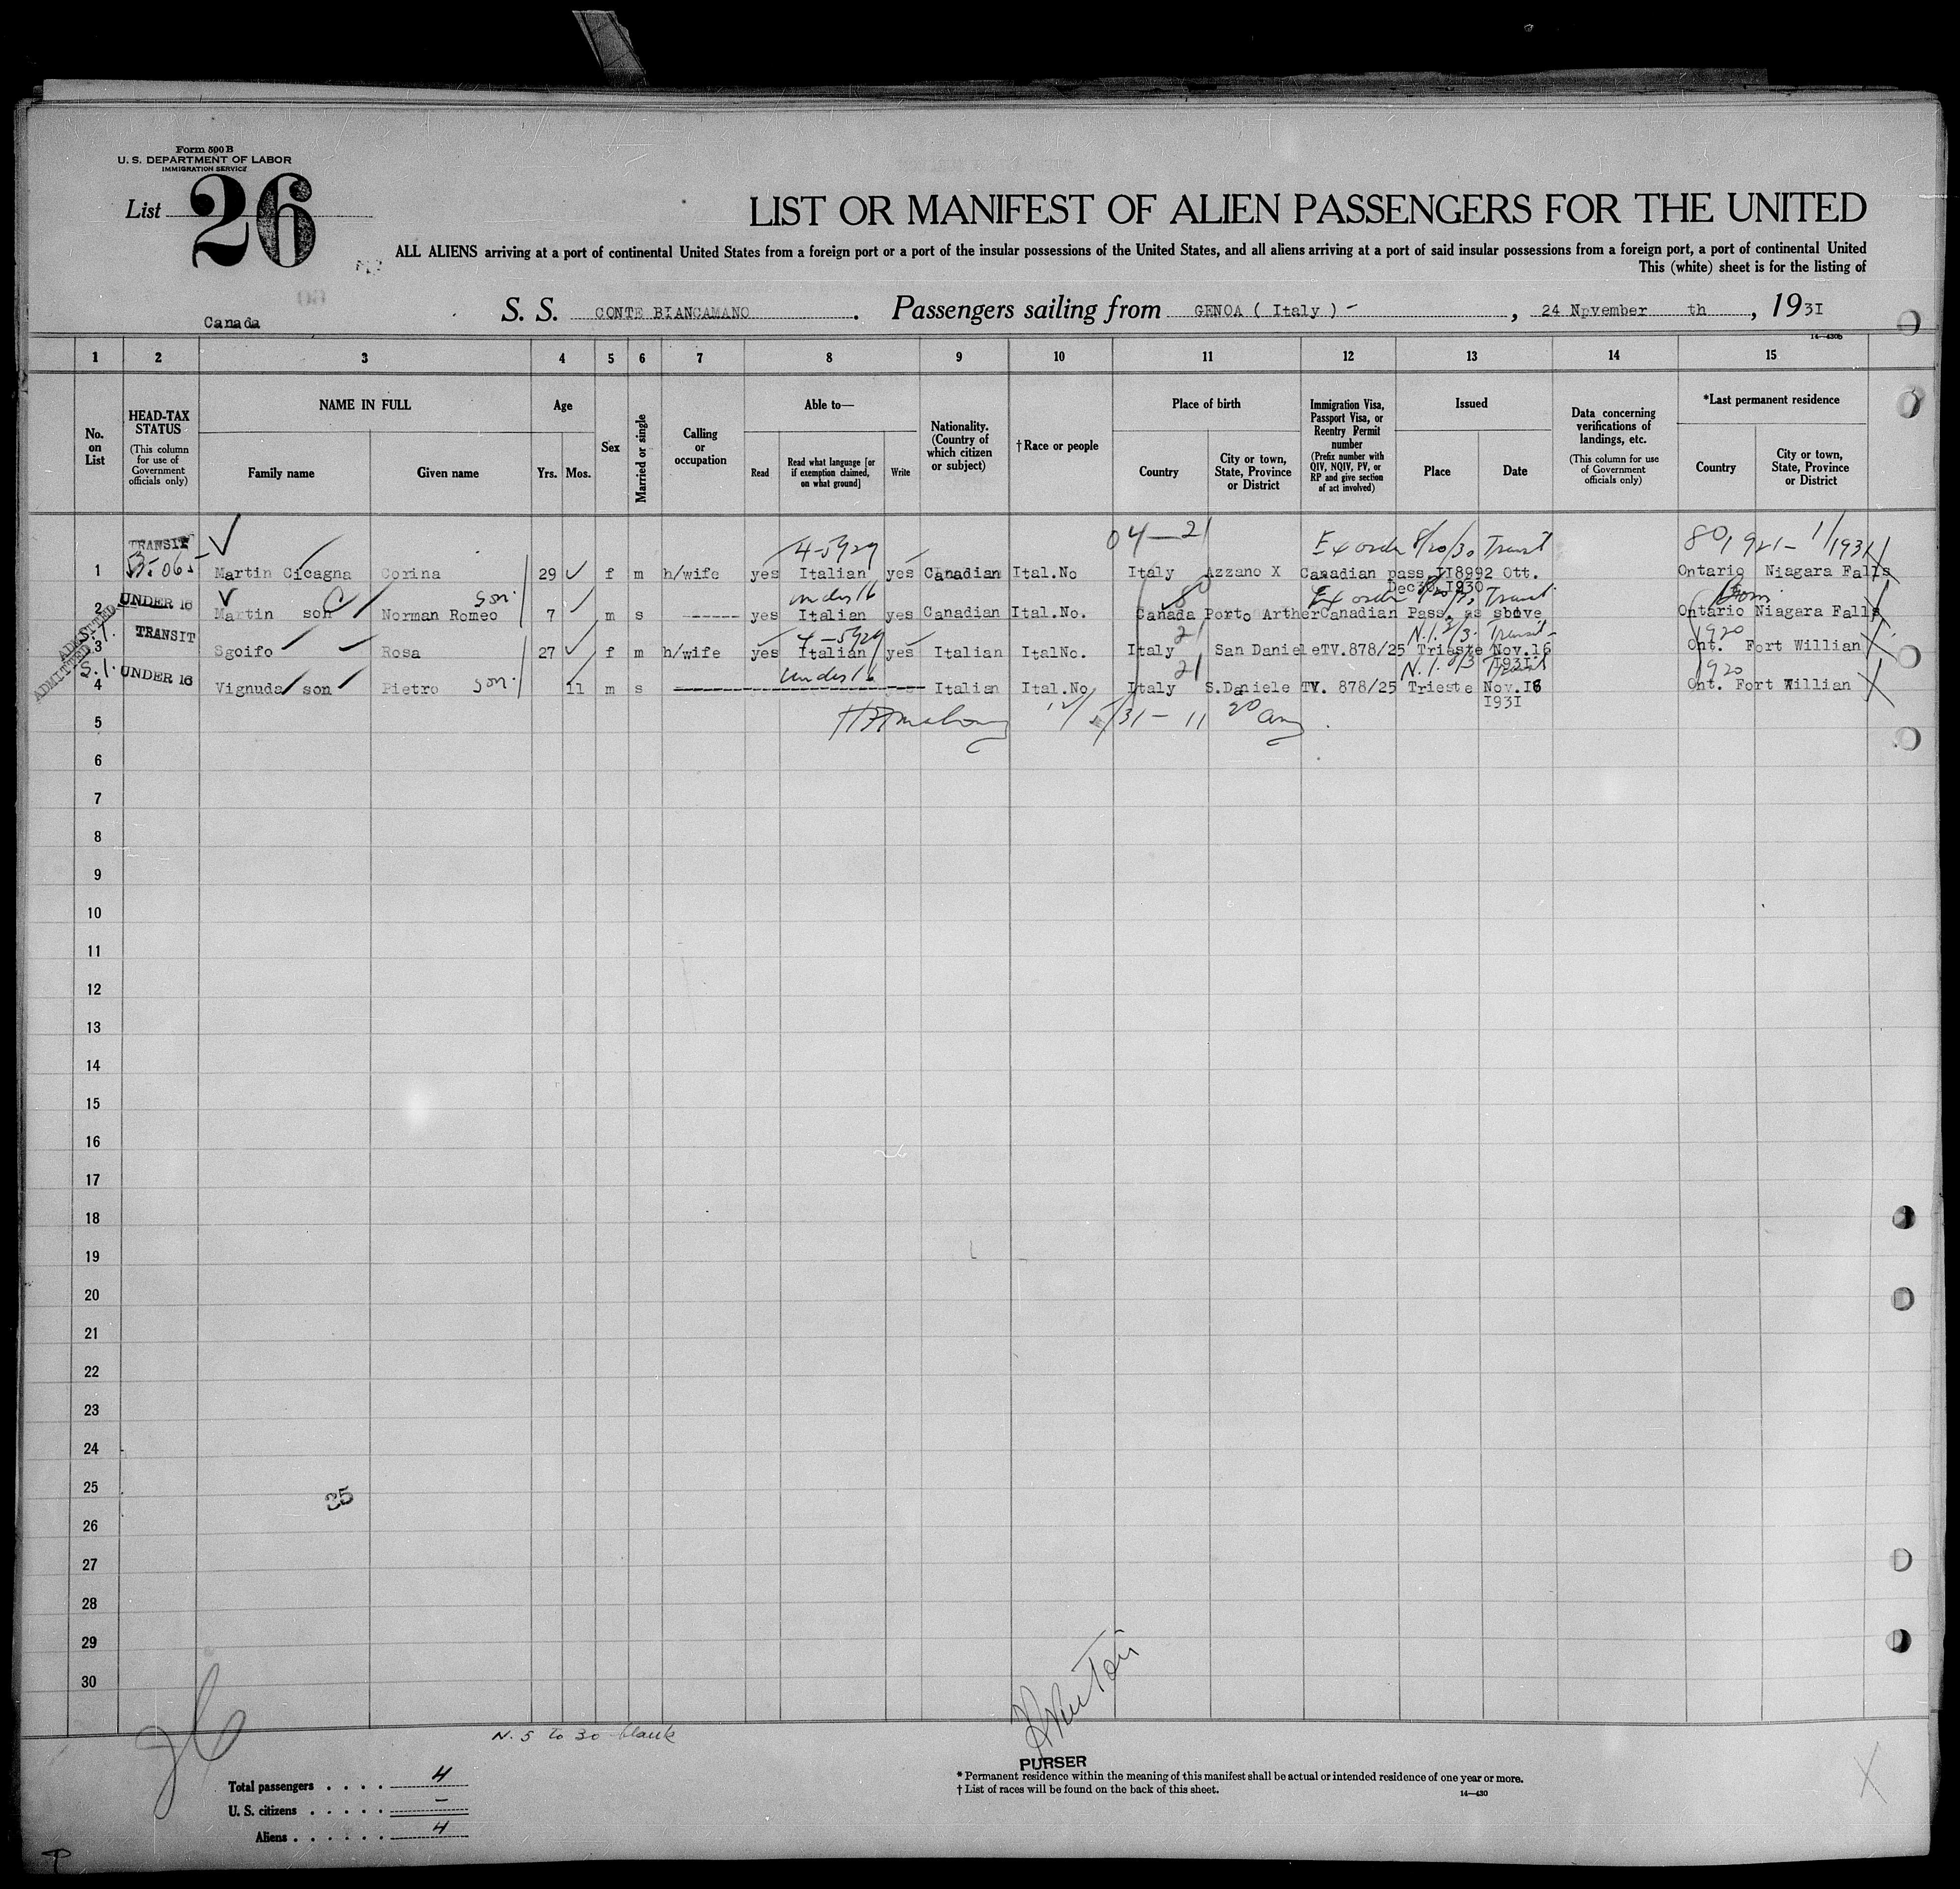 Form 500 B
U. S. DEPARTMENT OF LABOR
IMMIGRATION SERVICE
List 26
LIST OR MANIFEST OF ALIEN PASSENGERS FOR THE UNITED
ALL ALIENS arriving at a port of continental United States from a foreign port or a port of the insular possessions of the United States, and all aliens arriving at a port of said insular possessions from a foreign port, a port of continental United
This (white) sheet is for the listing of
Canada
S. S. CONTE BIANCAMANO . Passengers sailing from GENOA ( Italy ) - , 24 Npvember th , 1931
14—430b
1 2 3 4 5 6 7 8 9 10 11 12 13 14 15
No. on List
HEAD-TAX STATUS
(This column for use of Government officials only)
NAME IN FULL
Family name
Given name
Age
Yrs. Mos.
Sex
Married or single
Calling or occupation
Able to—
Read
Read what language [or if exemption claimed, on what ground]
Write
Nationality. (Country of which citizen or subject)
† Race or people
Place of birth
Country
City or town, State, Province or District
Immigration Visa, Passport Visa, or Reentry Permit number
(Prefix number with QIV, NQIV, PV, or RP and give section of act involved)
Issued
Place
Date
Data concerning verifications of landings, etc.
(This column for use of Government officials only)
*Last permanent residence
Country
City or town, State, Province or District
TRANSIT 4-5929 04—21 Ex order 8/20/30 Transit
1 Martin Cicagna Corina 29 f m h/wife yes Italian yes Canadian Ital.No Italy Azzano X Canadian pass II8992 Ott. Ontario Niagara Falls
Dec30 I930
UNDER 16 son under 16 Ex order Transit
2 Martin son Norman Romeo 7 m s ------ yes Italian yes Canadian Ital.No. Canada Porto Arther Canadian Pass. as sbove Ontario Niagara Falls
ADMITTED S.I. TRANSIT 4-5929 21 Transit 1920
3 Sgoifo Rosa 27 f m h/wife yes Italian yes Italian ItalNo. Italy San Daniele TV.878/25 Trieste Nov.16 Ont. Fort Willian
I93I
ADMITTED S.I. UNDER 16 son under 16 21 Transit 1920
4 Vignuda son Pietro 11 m s Italian Ital.No Italy S.Daniele TV. 878/25 Trieste Nov.I6 Ont. Fort Willian
I93I
5
6
7
8
9
10
11
12
13
14
15
16
17
18
19
20
21
22
23
24
25
35
26
27
28
29
30
26
N. 5 to 30 blank
PURSER
Total passengers . . . . 4
U. S. citizens . . . . . -
Aliens . . . . . . 4
* Permanent residence within the meaning of this manifest shall be actual or intended residence of one year or more.
† List of races will be found on the back of this sheet.
14—430